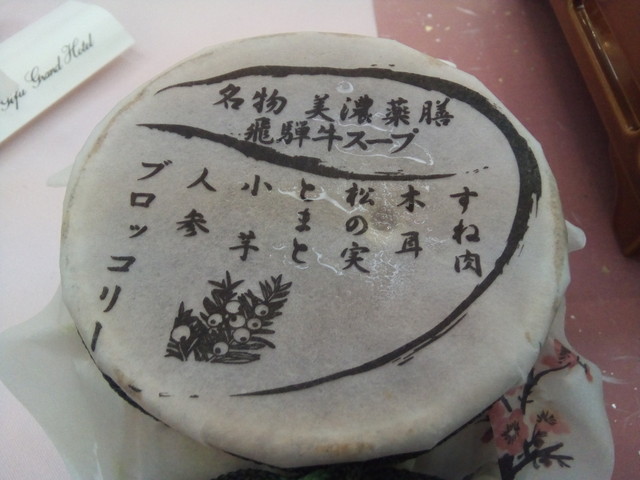 Gifu Grand Hotel
名物 美濃薬膳
飛騨牛スープ
すね肉
木耳
松の実
とまと
小芋
人参
ブロッコリー